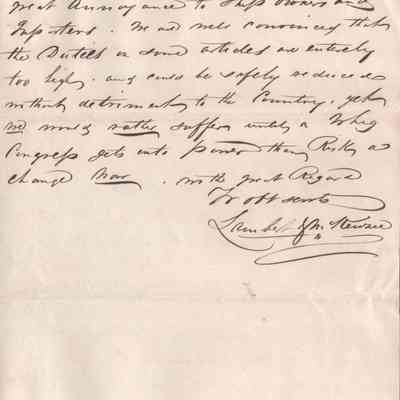 great Annoyance to Ship owners and
Importers. We are well convinced that
the Duties on some articles are entirely
too high. and could be safely reduced
without detriment to the Country. yet
we would rather suffer until a Whig
Congress gets into power than Risk a
change Now. with great Regard
Yr obt servts
Lambert & McKenzie